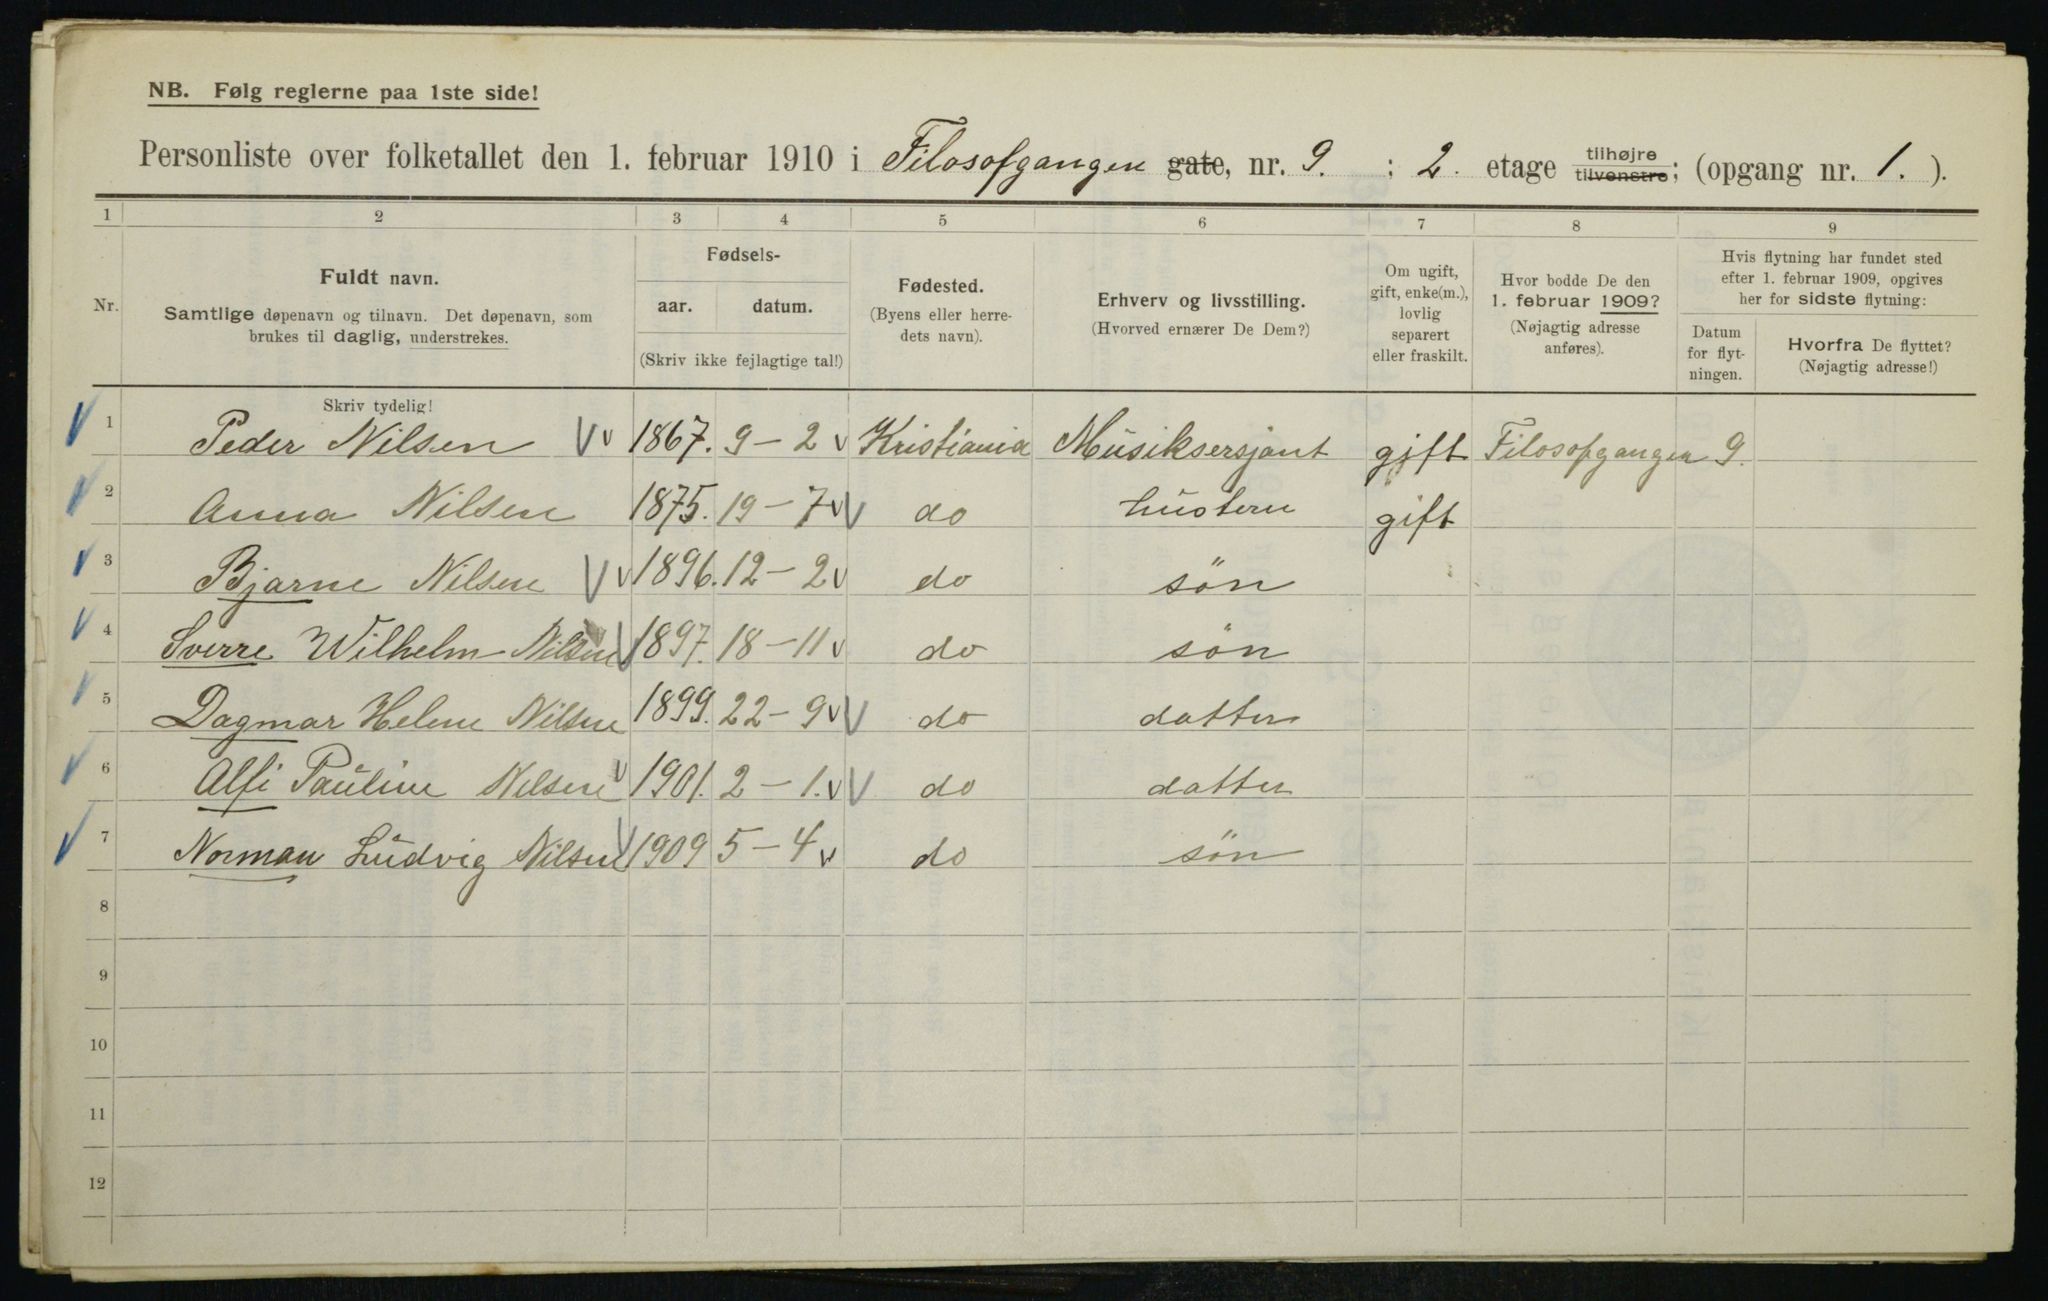 NB. Følg reglerne paa 1ste side!
Personliste over folketallet den 1. februar 1910 i Filosofgangen gate, nr. 9. : 2. etage tilhøjre tilvenstre; (opgang nr. 1. ).
1 2 3 4 5 6 7 8 9
Nr. Fuldt navn. Samtlige døpenavn og tilnavn. Det døpenavn, som brukes til daglig, understrekes.
Fødsels- aar. datum. (Skriv ikke fejlagtige tal!)
Fødested. (Byens eller herredets navn).
Erhverv og livsstilling. (Hvorved ernærer De Dem?)
Om ugift, gift, enke(m.), lovlig separert eller fraskilt.
Hvor bodde De den 1. februar 1909? (Nøjagtig adresse anføres).
Hvis flytning har fundet sted efter 1. februar 1909, opgives her for sidste flytning:
Datum for flytningen. Hvorfra De flyttet? (Nøjagtig adresse!)
Skriv tydelig!
1 Peder Nilsen 1867. 9-2 Kristiania Musiksersjant gift Filosofgangen 9.
2 Anna Nilsen 1875. 19-7 do hustru gift
3 Bjarne Nilsen 1896. 12-2 do sön
4 Sverre Wilhelm Nilsen 1897. 18-11 do sön
5 Dagmar Helene Nilsen 1899. 22-9 do datter
6 Alfi Pauline Nilsen 1901. 2-1. do datter
7 Norman Ludvig Nilsen 1909 5-4 do sön
8
9
10
11
12